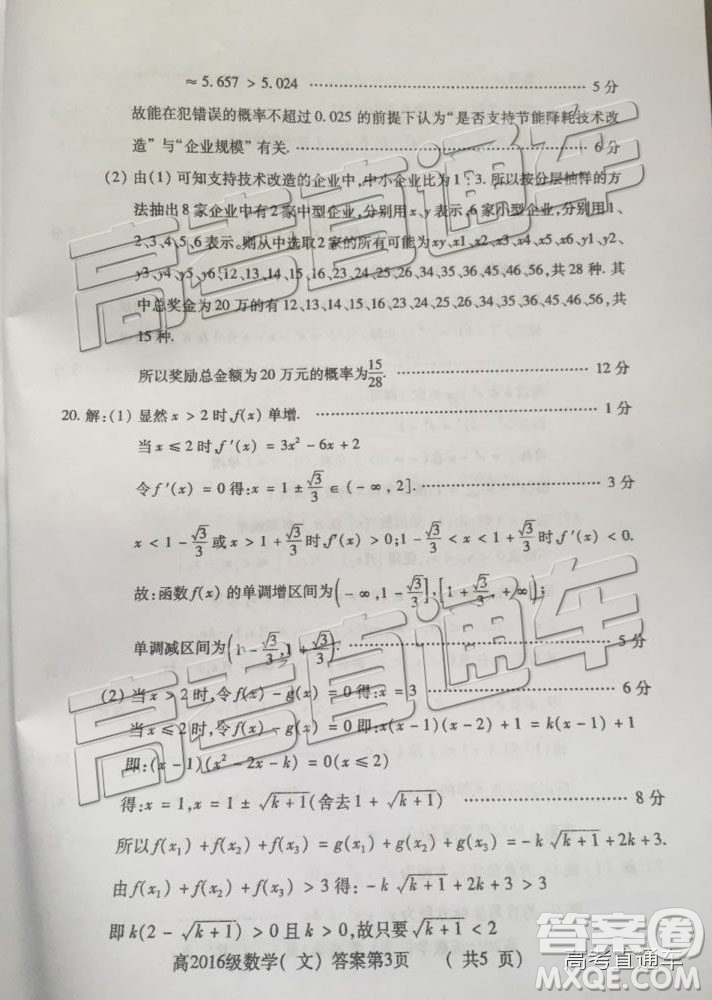 ≈5.657 > 5.024 ……………………………… 5 分
故能在犯错误的概率不超过 0.025 的前提下认为“是否支持节能降耗技术改
造”与“企业规模”有关. ……………………………… 6 分
(2) 由(1) 可知支持技术改造的企业中,中小企业比为 1∶3. 所以按分层抽样的方
法抽出 8 家企业中有 2 家中型企业,分别用 x、y 表示,6 家小型企业,分别用 1、
2、3、4、5、6 表示。则从中选取 2 家的所有可能为 xy、x1、x2、x3、x4、x5、x6、y1、y2、
y3、y4、y5、y6、12、13、14、15、16、23、24、25、26、34、35、36、45、46、56,共 28 种. 其
中总奖金为 20 万的有 12、13、14、15、16、23、24、25、26、34、35、36、45、46、56,共
15 种.
所以奖励总金额为 20 万元的概率为 15/28. ……………………………… 12 分
20. 解:(1) 显然 x > 2 时,f(x) 单增. ……………………………… 1 分
当 x ≤ 2 时,f′(x) = 3x² − 6x + 2
令 f′(x) = 0 得:x = 1 ± √3/3 ∈ (− ∞ ,2]. ……………………………… 3 分
x < 1 − √3/3 或 x > 1 + √3/3 时 f′(x) > 0;1 − √3/3 < x < 1 + √3/3 时 f′(x) < 0.
故:函数 f(x) 的单调增区间为 (− ∞ ,1 − √3/3],[1 + √3/3, + ∞);
单调减区间为 (1 − √3/3,1 + √3/3). ……………………………… 5 分
(2) 当 x > 2 时,令 f(x) − g(x) = 0 得:x = 3 ……………………………… 6 分
当 x ≤ 2 时,令 f(x) − g(x) = 0 即:x(x − 1)(x − 2) + 1 = k(x − 1) + 1
即:(x − 1)(x² − 2x − k) = 0(x ≤ 2)
得:x = 1,x = 1 ± √(k + 1)(舍去 1 + √(k + 1)) ……………………………… 8 分
所以 f(x₁) + f(x₂) + f(x₃) = g(x₁) + g(x₂) + g(x₃) = − k √(k + 1) + 2k + 3.
由 f(x₁) + f(x₂) + f(x₃) > 3 得: − k √(k + 1) + 2k + 3 > 3
即 k(2 − √(k + 1)) > 0 且 k > 0,故只要 √(k + 1) < 2
高2016级数学( 文) 答案第3页 ( 共5 页)
高考直通车
高考直通车
高考直通车
答案圈
高考直通车
MXQE.COM